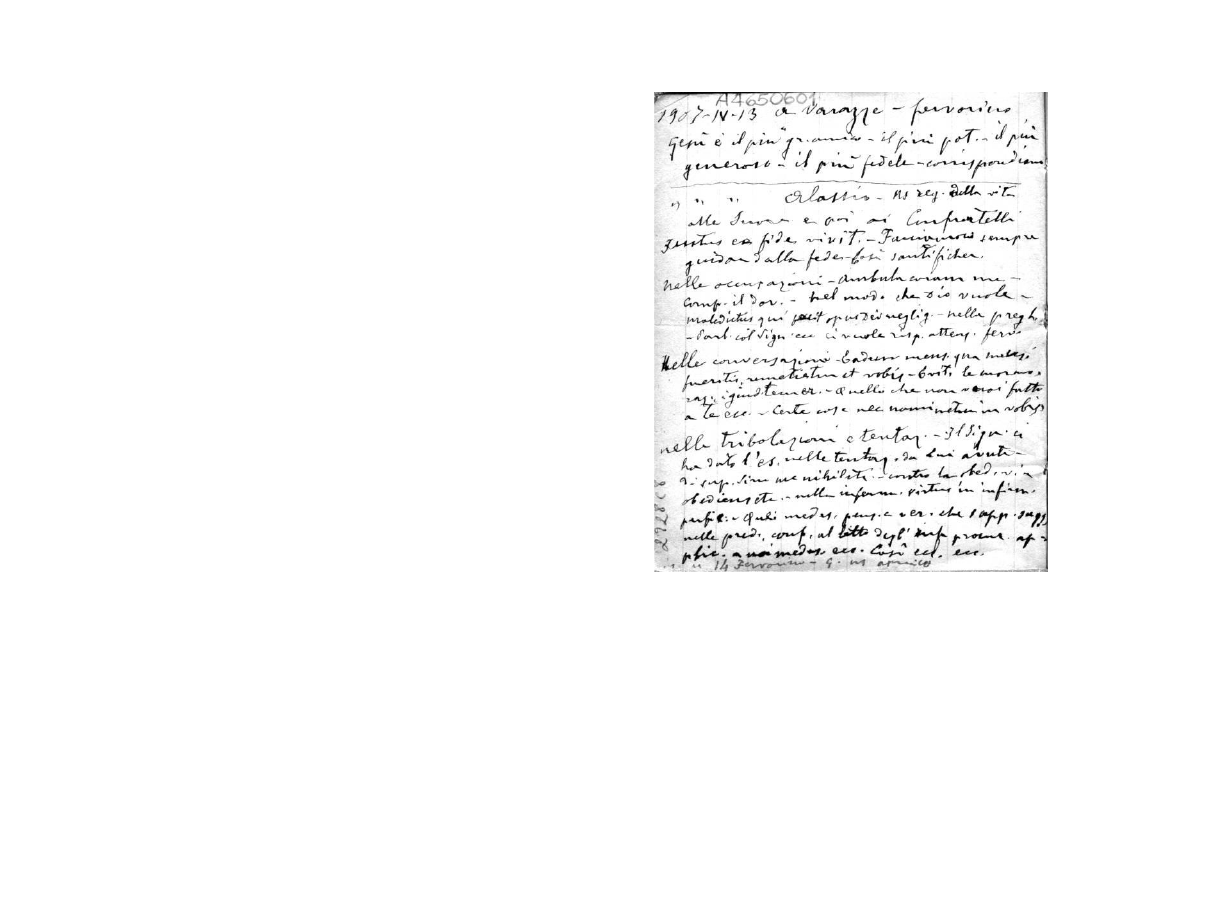 A4650601
1907-IV-13 a Varazze - fervorino
Gesù è il più gr. amico - il più pot. - il più
generoso - il più fedele - corrispondiamo
" " " Alassio - As reg. della vita
alle Suore e poi ai Confratelli
Justus ex fide vivit. - Facciamoci sempre
guidar dalla fede - Così santificher.
Nelle occupazioni - Ambula coram me -
Comp. il dov. - nel modo che Dio vuole -
maledictus qui facit opus Dei neglig. - nella pregh.
- Parl. col Sign. ecc ci vuole risp. attenz. ferv.
Nelle conversazioni - Eadem mens. qua mensi
fueritis, remetietur et vobis - Eviti le mormor.
giud. temer. - Quello che non vuoi fatto
a te ecc. - Certe cose nec nominetur in vobis
nelle tribolazioni e tentaz. - Il Sign. ci
ha dato l'es. nelle tentaz. da Lui avute -
Di sup. Sine me nihil - contro la obed. vir
obediens ecc. - nelle inferm. virtus in infirm.
perfic. - Quei medes. pens. e ver. che sapp. sugg.
nelle pred., conf., al letto degl' inf. procur. ap=
plic. a noi medes. ecc. Così ecc. ecc.
" " 14 Fervorino - G. ns amico